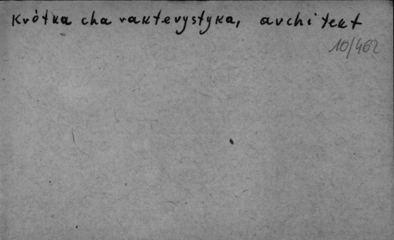 Krótka charakterystyka, architekt
10/462